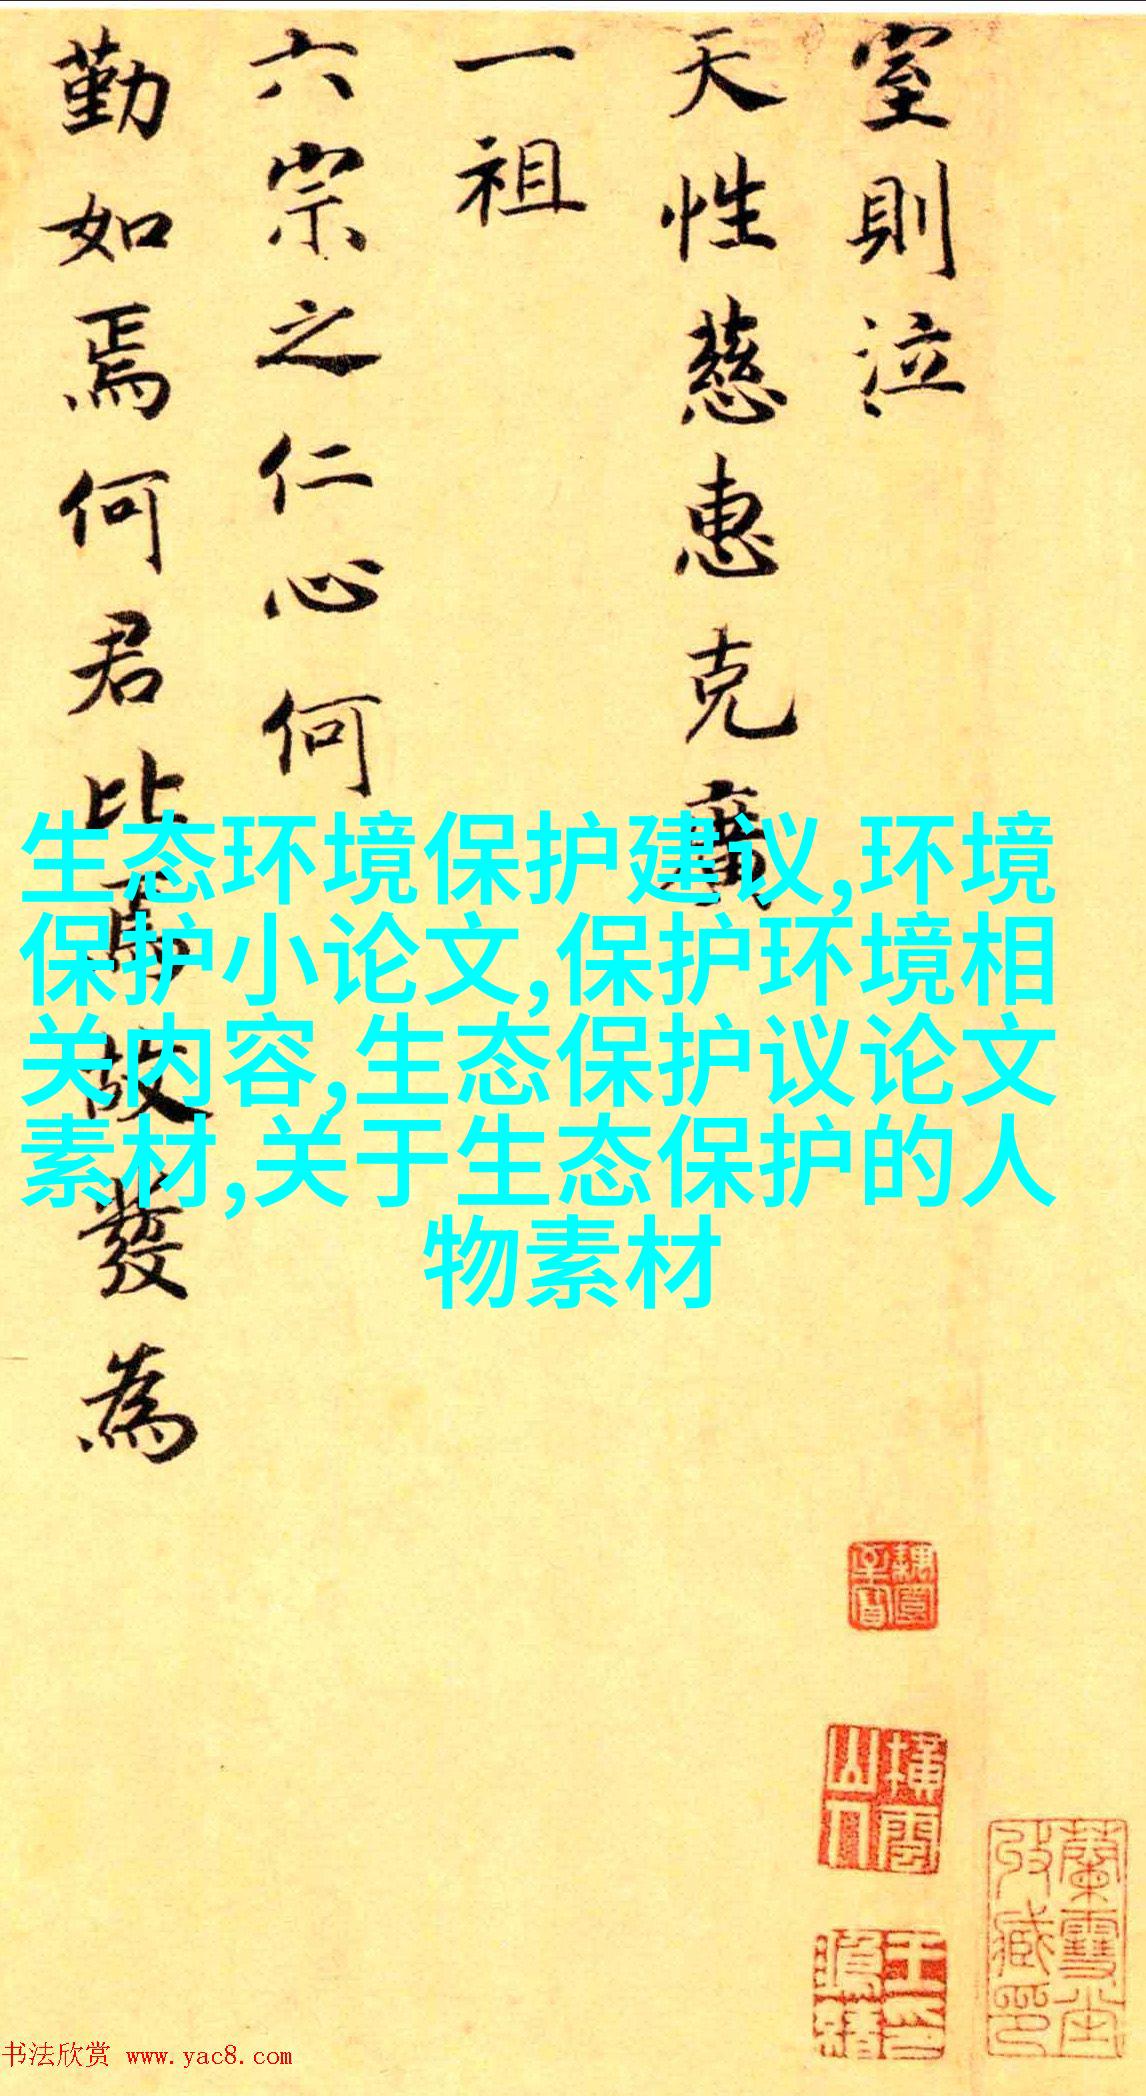 室則泣
天性慈惠克廣
一祖
六宗之仁心何
勤如焉何君比焉故發為
生态环境保护建议,环境
保护小论文,保护环境相
关内容,生态保护议论文
素材,关于生态保护的人
物素材
横雲山人
蘭雪堂收藏印
书法欣赏 www.yac8.com